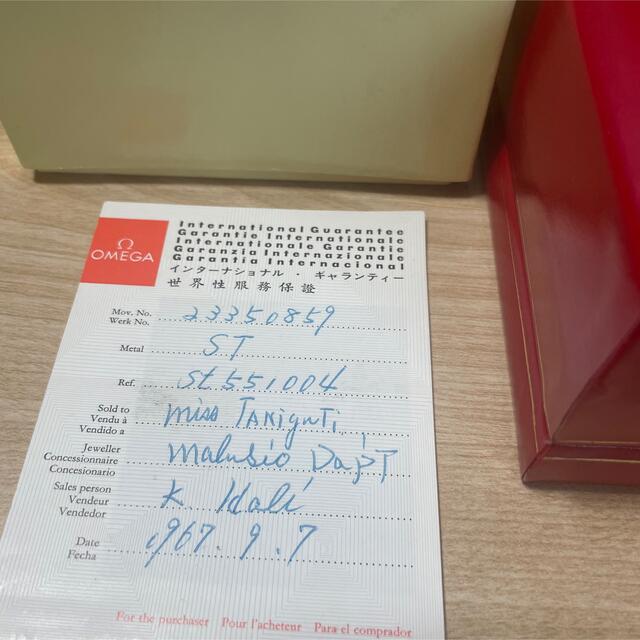 Ω
OMEGA
International Guarantee
Garantie Internationale
Internationale Garantie
Garanzia Internazionale
Garantia Internacional
インターナショナル・ギャランティー
世界性服務保證
Mov. No. 23350859
Werk No.
Metal ST
Ref. St 551004
Sold to Miss TAKIguTi
Vendu à
Vendido a
Jeweller
Concessionnaire
Concesionario
Sales person K.
Vendeur
Vendedor
Date 1967. 9. 7
Fecha
For the purchaser Pour l'acheteur Para el comprador